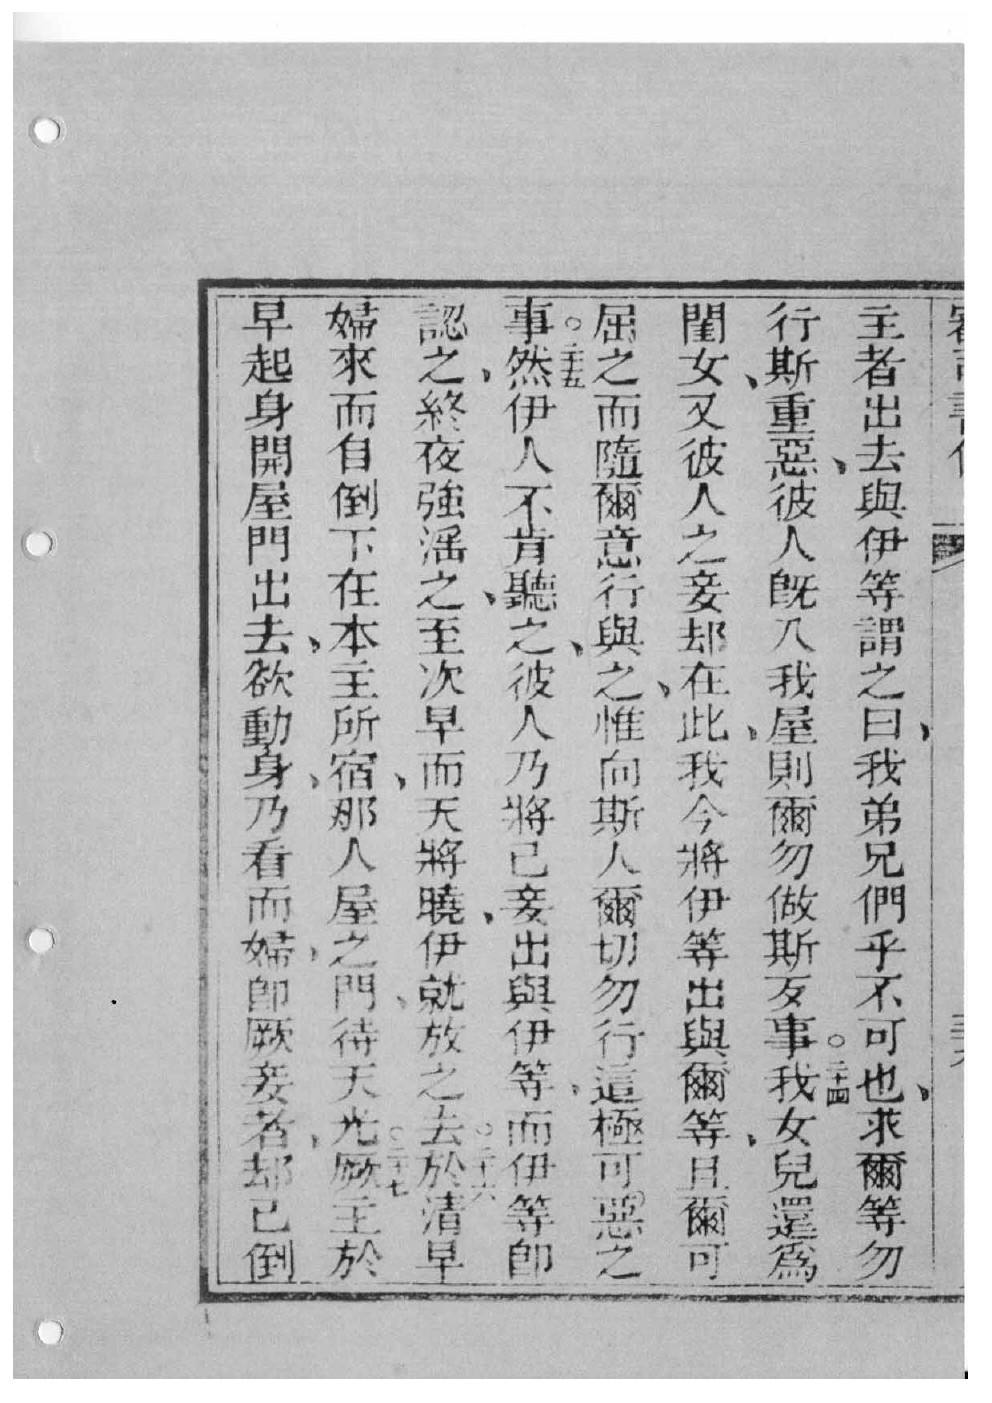 主者出去與伊等謂之曰、我弟兄們乎不可也、求爾等勿
行斯重惡、彼人旣入我屋則爾勿做斯歹事。二十四我女兒還爲
閨女、又彼人之妾却在此、我今將伊等出與爾等、且爾可
屈之而隨爾意行與之、惟向斯人爾切勿行這極可惡之
事。二十五然伊人不肯聽之、彼人乃將己妾出與伊等、而伊等卽
認之、終夜強滛之、至次早而天將曉、伊就放之去。二十六於清早
婦來而自倒下在本主所宿、那人屋之門、待天光。二十七厥主於
早起身開屋門出去、欲動身、乃看而婦、卽厥妾者、却已倒